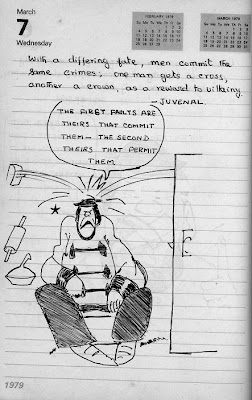 March
7
Wednesday
FEBRUARY 1979
MARCH 1979
With a differing fate, men commit the
same crimes: one man gets a cross,
another a crown, as a reward to villainy
— JUVENAL.
THE FIRST FAULTS ARE
THEIRS THAT COMMIT
THEM — THE SECOND
THEIRS THAT PERMIT
THEM.
1979